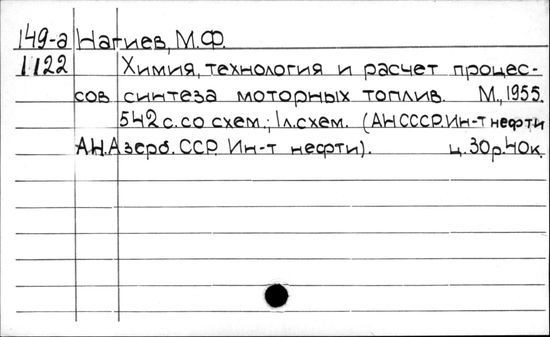 149-а Нагиев, М.Ф.
1122 Химия, технология и расчет процес-
сов синтеза моторных топлив. М., 1955.
542 с. со схем.; 1 л. схем. (АН СССР. Ин-т нефти
АН. Азерб. ССР. Ин-т нефти). ц. 30 р. 40 к.